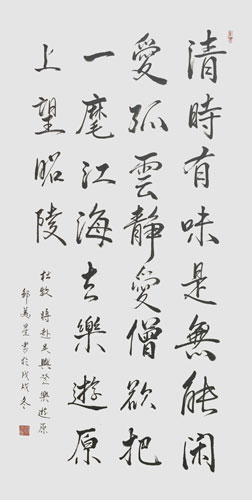 清時有味是無能閑
愛孤雲靜愛僧欲把
一麾江海去樂遊原
上望昭陵
杜牧 將赴吳興登樂遊原
書於戊戌冬